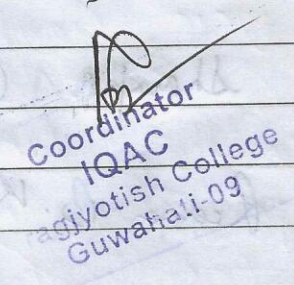 Coordinator
IQAC
agjyotish College
Guwahati-09